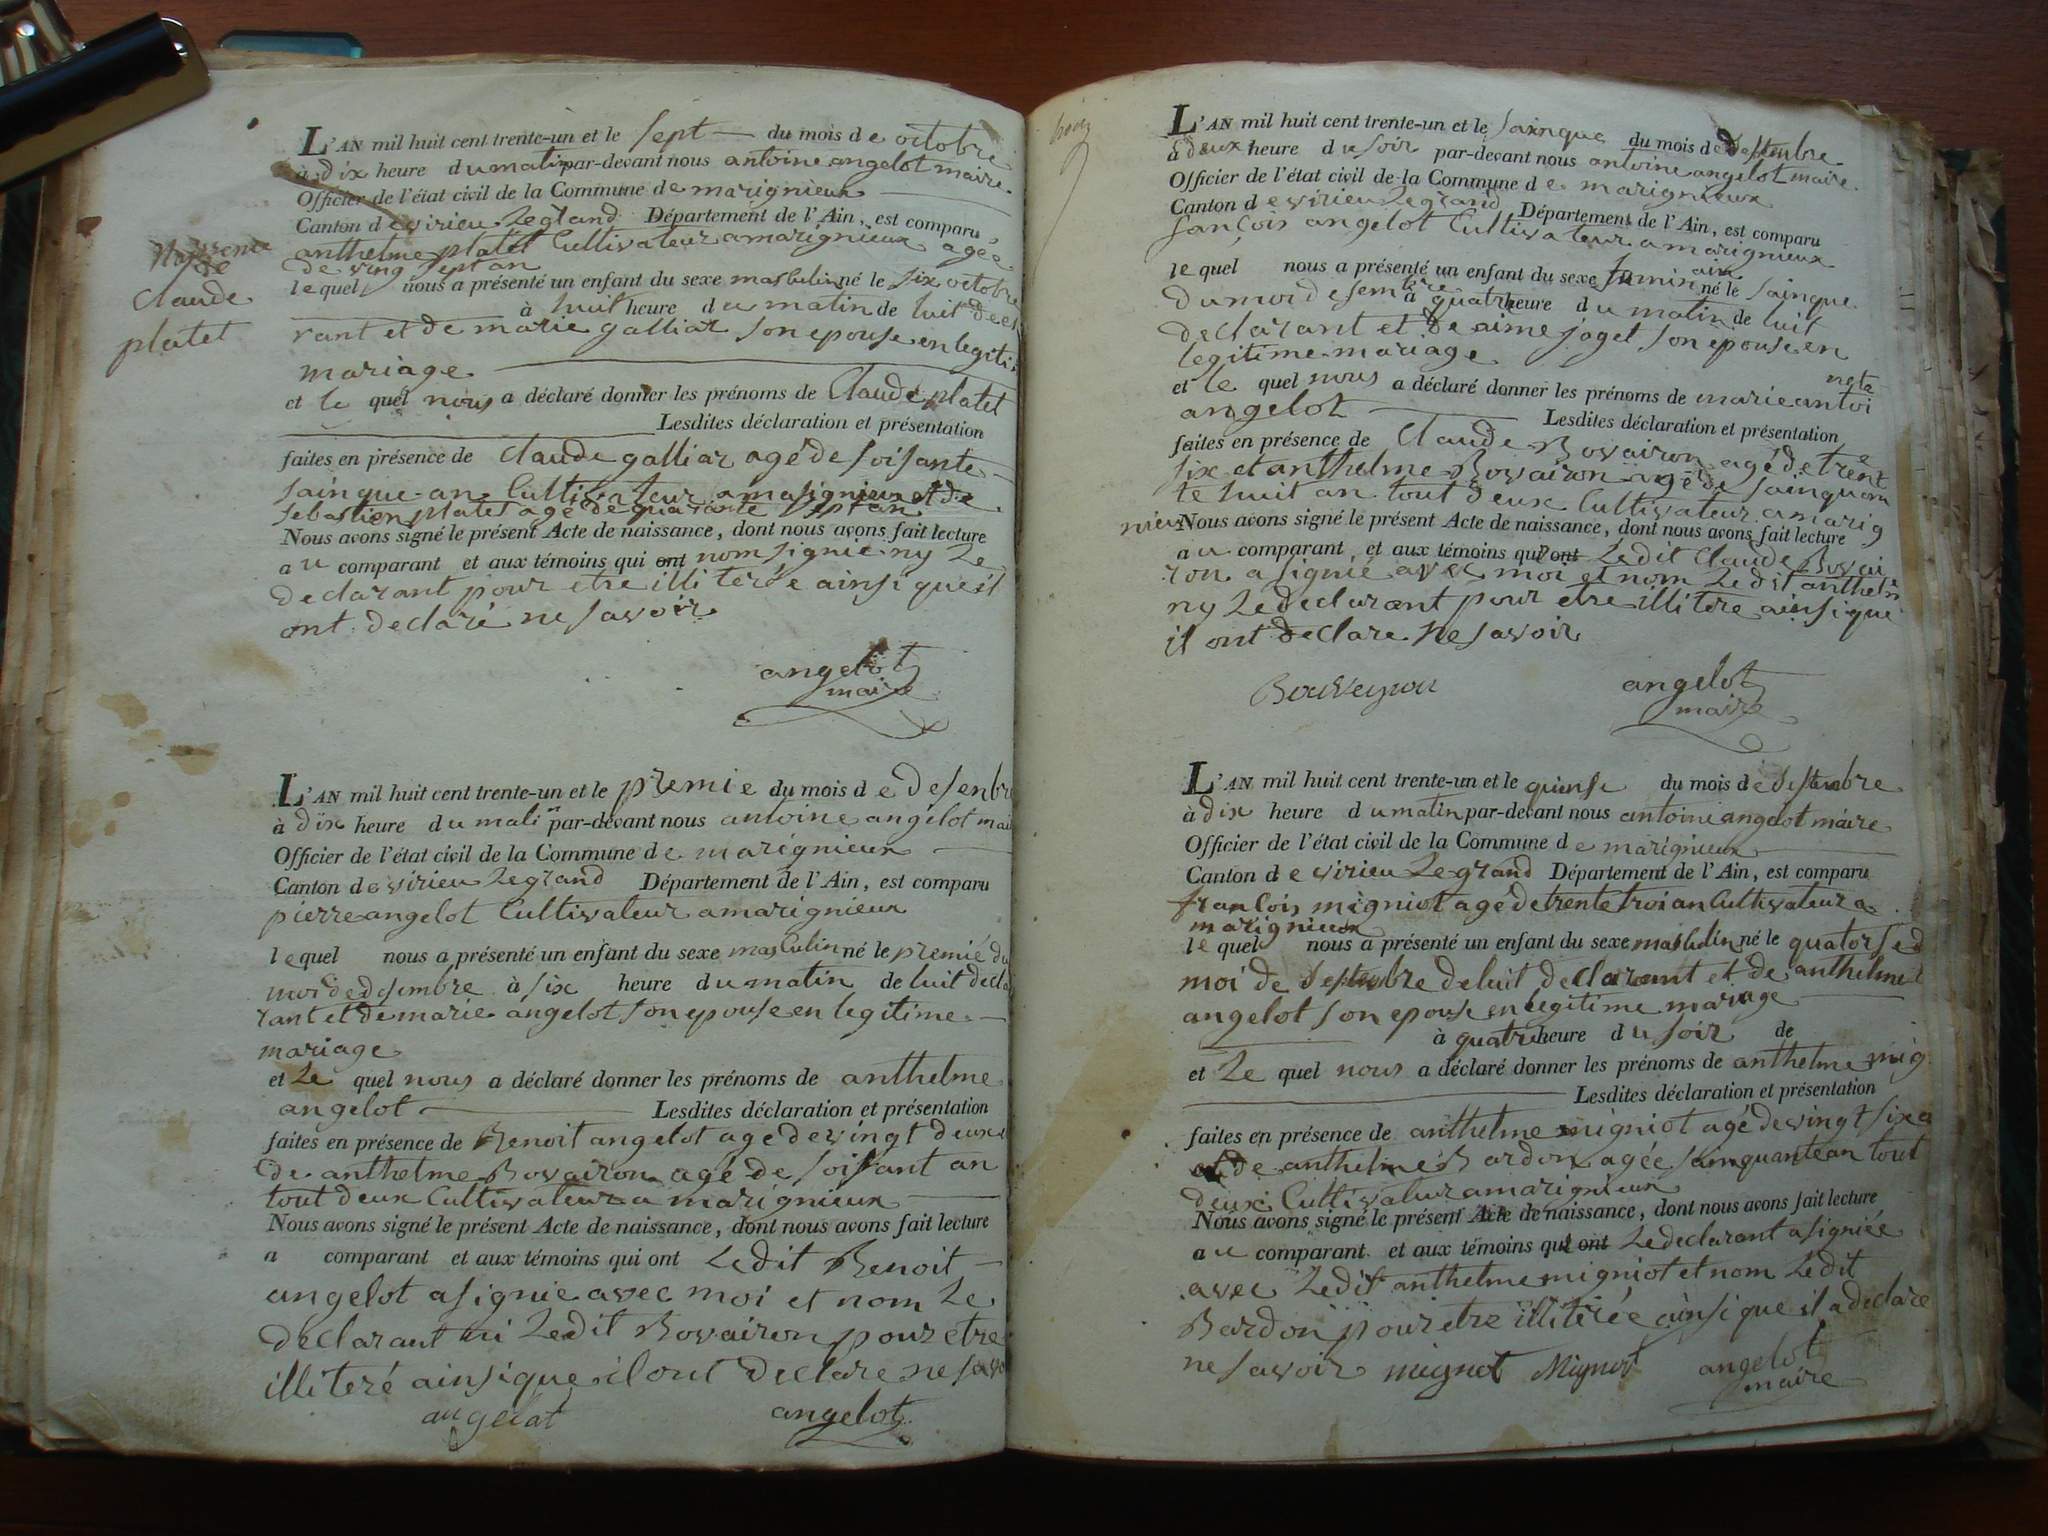 Naissence
de
Claude
platet
L'AN mil huit cent trente-un et le sept du mois de octobre
à dix heure du matin par-devant nous antoine angelot maire
Officier de l'état civil de la Commune de marignieux
Canton de virieu Legrand Département de l'Ain, est comparu
anthelme platet Cultivateur amarignieux agée
de ving sept an
lequel nous a présenté un enfant du sexe masculin né le six octobre
à huit heure du matin de luit decl
rant et de marie galliar son epouse en legiti
mariage
et le quel nous a déclaré donner les prénoms de Claude platet
Lesdites déclaration et présentation
faites en présence de Claude galliar agé de soisante
sainque an Cultivateur amarignieux et de
sebastien platet agé de quarante sept an
Nous avons signé le présent Acte de naissance, dont nous avons fait lecture
au comparant et aux témoins qui ont nom signie ny Le
declarant pour etre illiterée ainsi que il
ont declaré ne savoir
angelot
maire
L'AN mil huit cent trente-un et le premie du mois de desenbr
à dix heure du mati par-devant nous antoine angelot mai
Officier de l'état civil de la Commune de marignieux
Canton de virieu Legrand Département de l'Ain, est comparu
pierre angelot Cultivateur amarignieux
lequel nous a présenté un enfant du sexe masculin né le premié du
moi de desembre à six heure du matin de luit decla
rant et de marie angelot son epouse en legitime
mariage
et Le quel nous a déclaré donner les prénoms de anthelme
angelot Lesdites déclaration et présentation
faites en présence de Benoit angelot agé de vingt deux
de anthelme Bovairon agé de soissant an
tout deux Cultivateur a marignieux
Nous avons signé le présent Acte de naissance, dont nous avons fait lecture
a comparant et aux témoins qui ont Ledit Benoit
angelot a signie avec moi et nom Le
declarant ni Ledit Bovairon pour etre
illiteré ainsi que il ont declare ne savo
angelot angelot
L'AN mil huit cent trente-un et le sainque du mois de desembre
à deux heure du soir par-devant nous antoine angelot maire
Officier de l'état civil de la Commune de marignieux
Canton de virieu Legrand Département de l'Ain, est comparu
fançois angelot Cultivateur amarignieux
lequel nous a présenté un enfant du sexe feminin né le sainque
du moi desembre à quatre heure du matin de luit
declarant et de aime jaget son epouse en
legitime mariage
et le quel nous a déclaré donner les prénoms de marie antoi
neta
angelot Lesdites déclaration et présentation
faites en présence de Claude Bovairon agé de trent
six et anthelme Bovairon agé de sainquan
te huit an tout deux Cultivateur amarig
nieux Nous avons signé le présent Acte de naissance, dont nous avons fait lecture
au comparant et aux témoins qui ont Ledit Claude Bovai
ron a signié avec moi et nom Ledit anthelm
ny Le declarant pour etre illitere ainsi que
il ont declare ne savoir
Bouveyron angelot
maire
L'AN mil huit cent trente-un et le quinse du mois de desembre
à dix heure du matin par-devant nous antoine angelot maire
Officier de l'état civil de la Commune de marignieux
Canton de virieu Legrand Département de l'Ain, est comparu
françois migniot agé de trente troi an Cultivateur a
marignieux
lequel nous a présenté un enfant du sexe masculin né le quatorse d
moi de desembre de luit declarant et de anthelme
angelot son epouse en legitime mariage
à quatre heure du soir de
et Le quel nous a déclaré donner les prénoms de anthelme mig
Lesdites déclaration et présentation
faites en présence de anthelme migniot agé de vingt six a
et de anthelme Bardon agée sainquante an tout
deux Cultivateur amarignieux
Nous avons signé le présent Acte de naissance, dont nous avons fait lecture
au comparant et aux témoins qui ont Le declarant a signiée
avec Ledit anthelme migniot et nom Ledit
Bardon pour etre illiterée ainsi que il a declare
ne savoir mignot Mignot angelot
maire